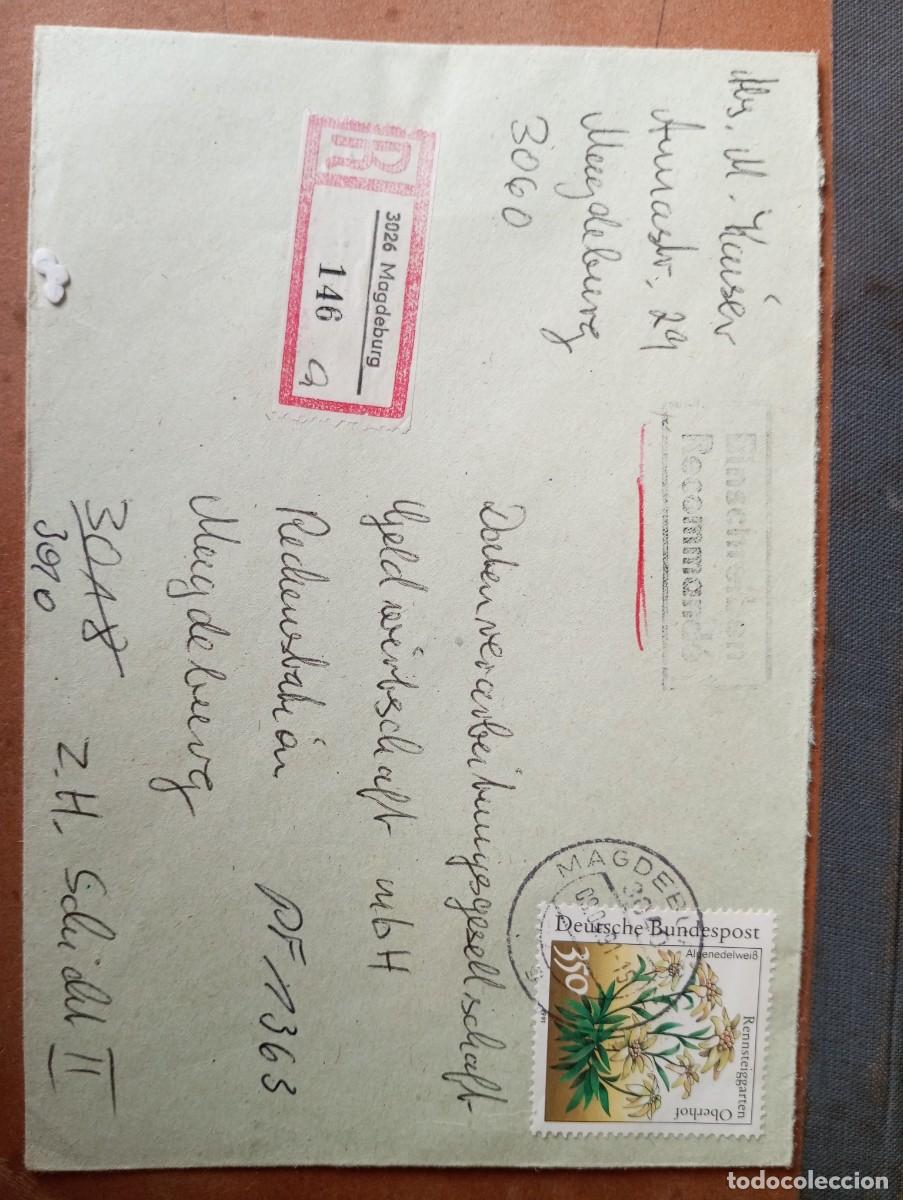 Abs. M. Kaiser
Annastr. 29
Magdeburg
3060
Einschreiben
Recommandé
R
3026 Magdeburg
146
a
Datenverarbeitungsgesellschaft
Geldwirtschaft mbH
Rechenstation
Magdeburg PF 1363
3018
3010
z.H. Schicht II
MAGDEBU
Deutsche Bundespost
Alpenedelweiß
350
Rennsteiggarten
Oberhof
todocoleccion